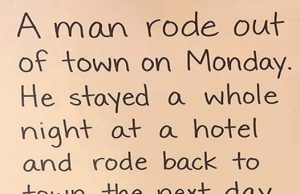 A man rode out
of town on Monday.
He stayed a whole
night at a hotel
and rode back to
town the next day